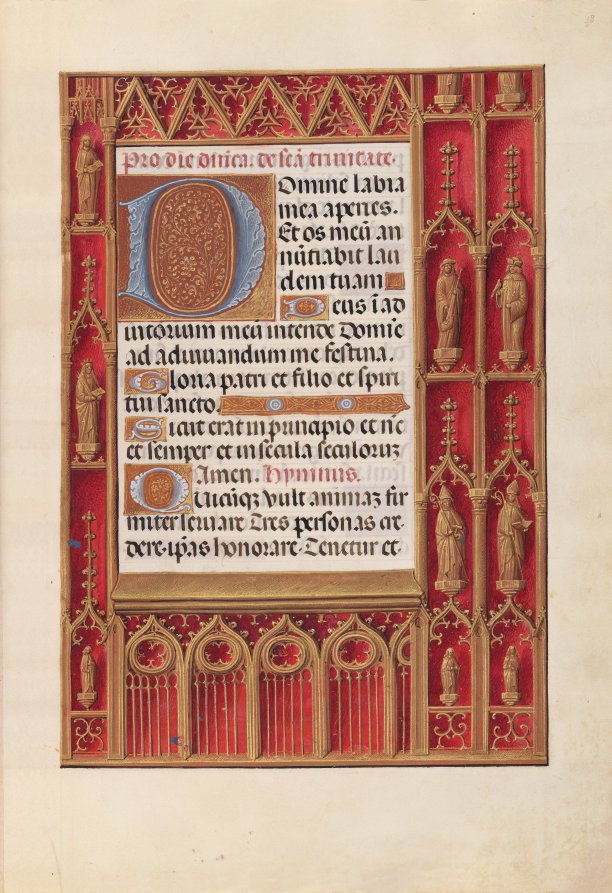 18
Pro die dnica. de scā trinitate.
Domine labia
mea aperies.
Et os meū an
nūtiabit lau
dem tuam
Deus ī ad
iutorium meū intende Domie
ad adiuuandum me festina.
Gloria patri et filio et spiri
tui sancto
Sicut erat in principio et nūc
et semper et in secula seculoruꝫ
Amen. Hymnus.
Quicūqꝫ vult animaꝫ fir
miter seruare Tres personas cre
dere ip̄as honorare Tenetur et